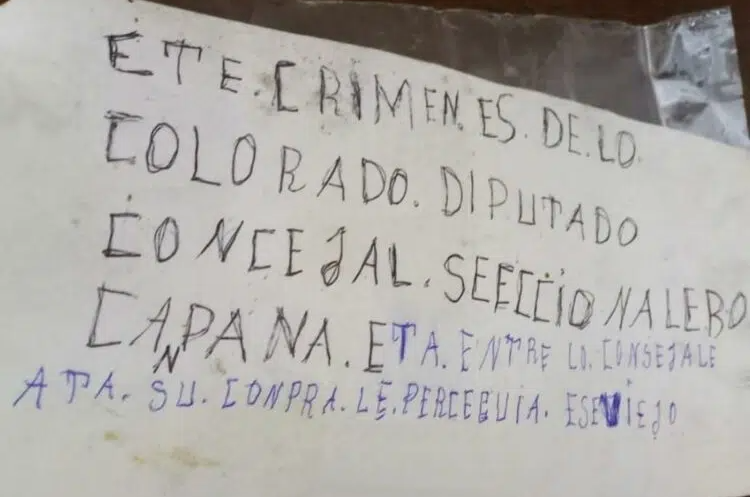 ETE. CRIMEN. ES. DE. LO.
COLORADO. DIPUTADO
CONCEJAL. SEECCIONALERO
CANPANA. ETA. ENTRE LO. CONSEJALE
ATA. SU. CONPRA. LE. PERCEGUIA. ESEVIEJO